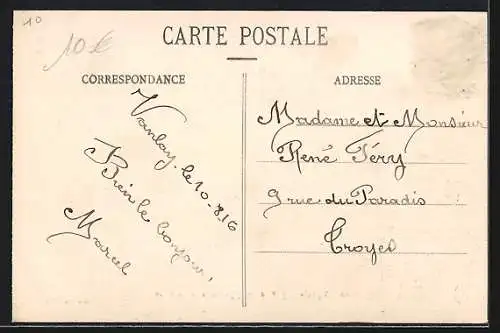 10
10€
CARTE POSTALE
CORRESPONDANCE
Vanlay. le 10-8-16
Bien le bonjour,
Marcel
ADRESSE
Madame et Monsieur
René Féry
9 rue du Paradis
Troyes